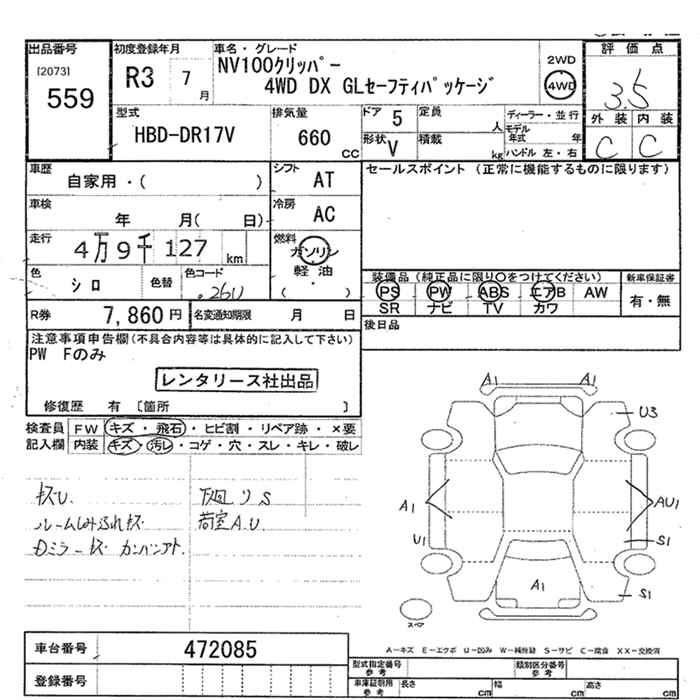 出品番号
[2073]
559
初度登録年月
R3 7 月
車名・グレード
NV100クリッパー
4WD DX GLセーフティパッケージ
2WD
4WD
評価点
3.5
外装 内装
C C
型式
HBD-DR17V
排気量
660 CC
ドア 5
形状 V
定員 人
積載 kg
ディーラー・並行
モデル年式 年
ハンドル 左・右
車歴
自家用・( )
シフト AT
セールスポイント (正常に機能するものに限ります)
車検 年 月( 日)
冷房 AC
走行 4万9千127 km
燃料
ガソリン
軽油・
( )
色 シロ 色替 色コード .26U
装備品 (純正品に限り○をつけてください) 新車保証書
PS PW ABS エアB AW 有・無
SR ナビ TV カワ
R券 7,860 円 名変通知期限 月 日
後日品
注意事項申告欄(不具合内容等は具体的に記入して下さい)
PW Fのみ
レンタリース社出品
修復歴 有 [箇所 ]
検査員 FW キズ・飛石・ヒビ割・リペア跡・×要
記入欄 内装 キズ・汚レ・コゲ・穴・スレ・キレ・破レ
キズU. 下廻りS
ルームしみ汚れキズ 荷室A.U
Dミラーキズ カンバンアト.
A1 A1
U3
A1 AU1
U1 S1
A1 S1
スペア
車台番号 472085
登録番号
A-キズ E-エクボ U-凹み W-補修跡 S-サビ C-腐食 XX-交換済
型式指定番号 参考 類別区分番号 参考
車庫証明用 参考 長さ cm 幅 cm 高さ cm